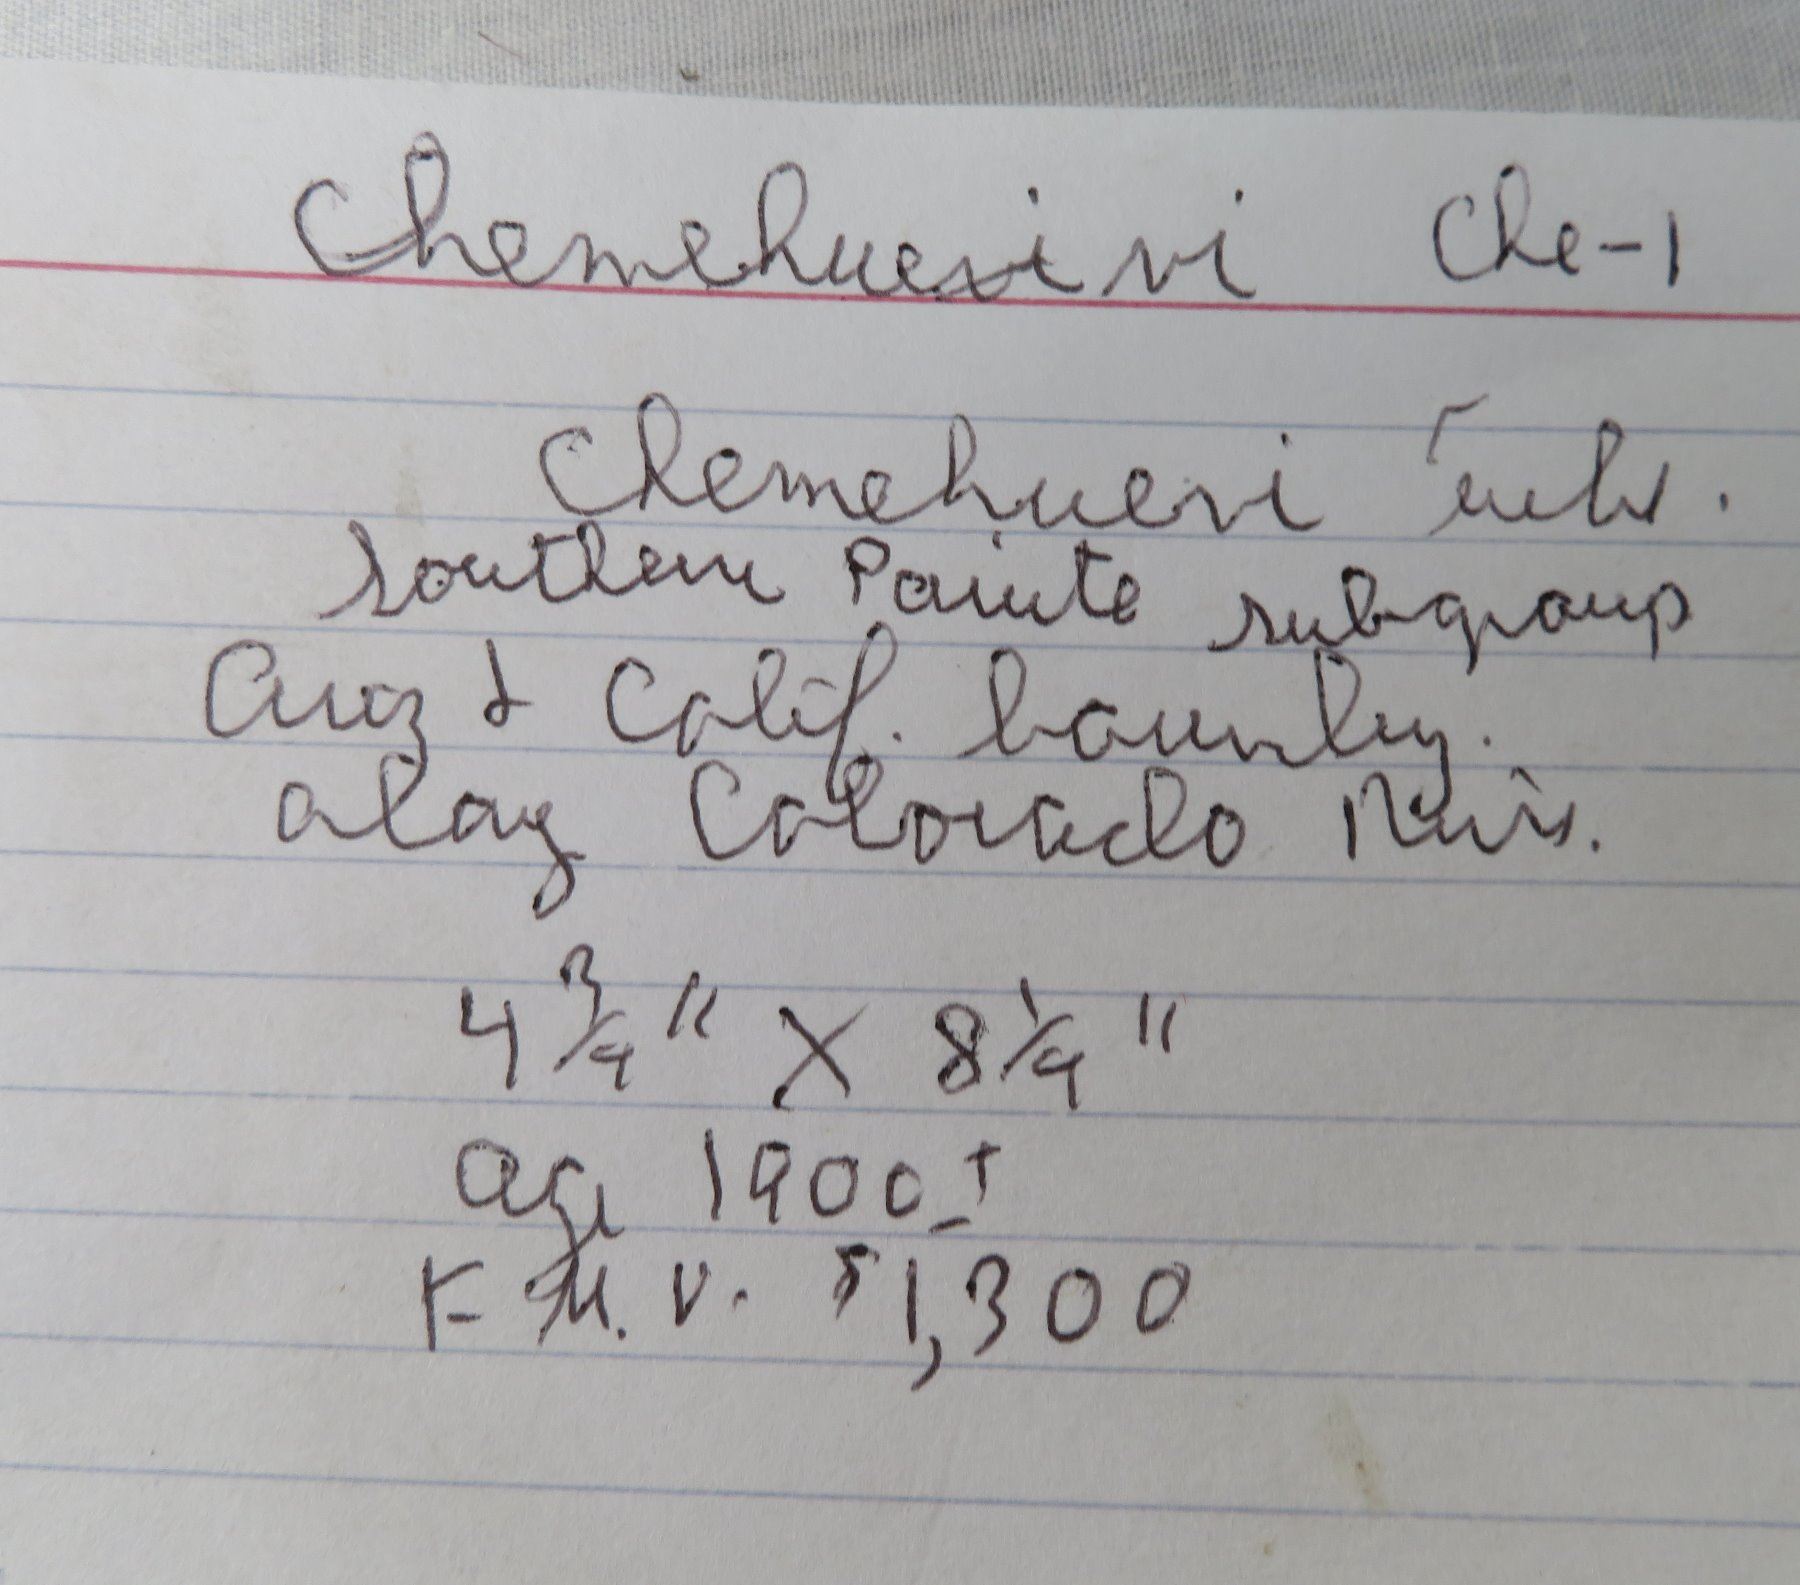 Chemehuevi vi Che-1
Chemehuevi Tribe.
Southern Paiute subgroup
Ariz & Calif. boundry.
along Colorado River.
4 3/4" X 8 1/4"
Age 1900 ±
F.M.V. $1,300